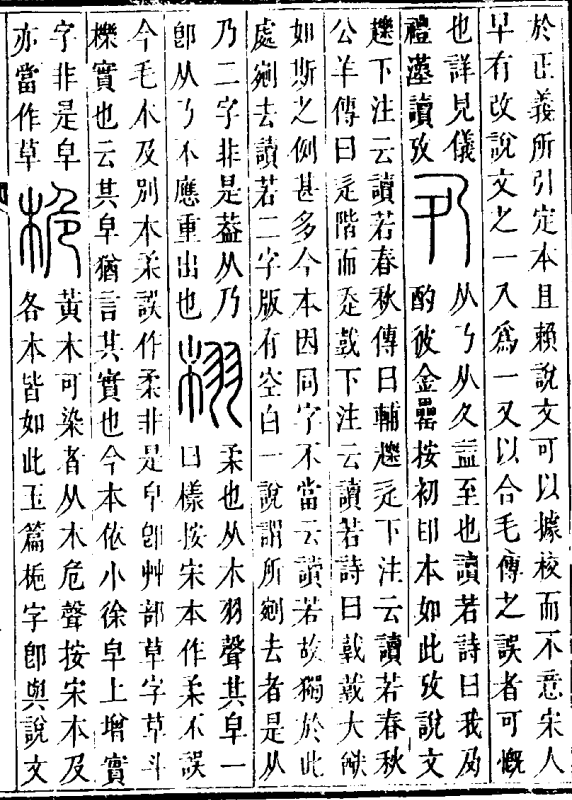 於正義所引定本且賴說文可以據校而不意宋人
早有改說文之一入爲一又以合毛傳之誤者可慨
也詳見儀
禮漢讀攷
夃
从乃从久益至也讀若詩曰我夃
酌彼金罍按初印本如此攷說文
䟏下注云讀若春秋傳曰輔䟏辵下注云讀若春秋
公羊傳曰辵階而走𢧤下注云讀若詩曰𢧤𢧤大猷
如斯之例甚多今本因同字不當云讀若故獨於此
處剜去讀若二字版有空白一說謂所剜去者是从
乃二字非是葢从乃
卽从乃不應重出也
栩
柔也从木羽聲其皁一
曰樣按宋本作柔不誤
今毛本及別本柔誤作柔非是皁卽艸部草字草斗
櫟實也云其皁猶言其實也今本依小徐皁上增實
字非是皁
亦當作草
桅
黃木可染者从木危聲按宋本及
各本皆如此玉篇桅字卽與說文